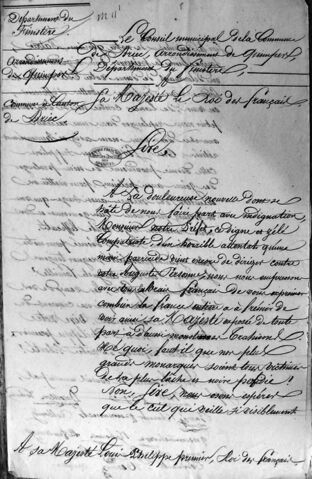 Département du
Finistère
Arrondissement
de Quimper
Commune & Canton
de Briec
Le Conseil municipal de la Commune
de Briec, Arrondissement de Quimper
Département du Finistère,
À Sa Majesté le Roi des français
Sire,
À la douloureuse nouvelle dont se
hâte de nous faire part avec indignation
Monsieur notre Préfet, ce digne et zélé
Compatriote d'un horrible attentat qu'une
main parricide vient encore de diriger contre
votre Auguste Personne, nous nous empressons
français de vous exprimer
combien la france entière a à frémir de
voir que Sa Majesté exposée de toute
part à d'aussi monstrueuses trahisons.
Hé quoi, faut-il que nos plus
grands monarques soient tous victimes
de la plus lâche et noire perfidie !
Non, Sire, nous osons espérer
que le Ciel qui veille si visiblement
A sa Majesté Louis Philippe premier, Roi des français